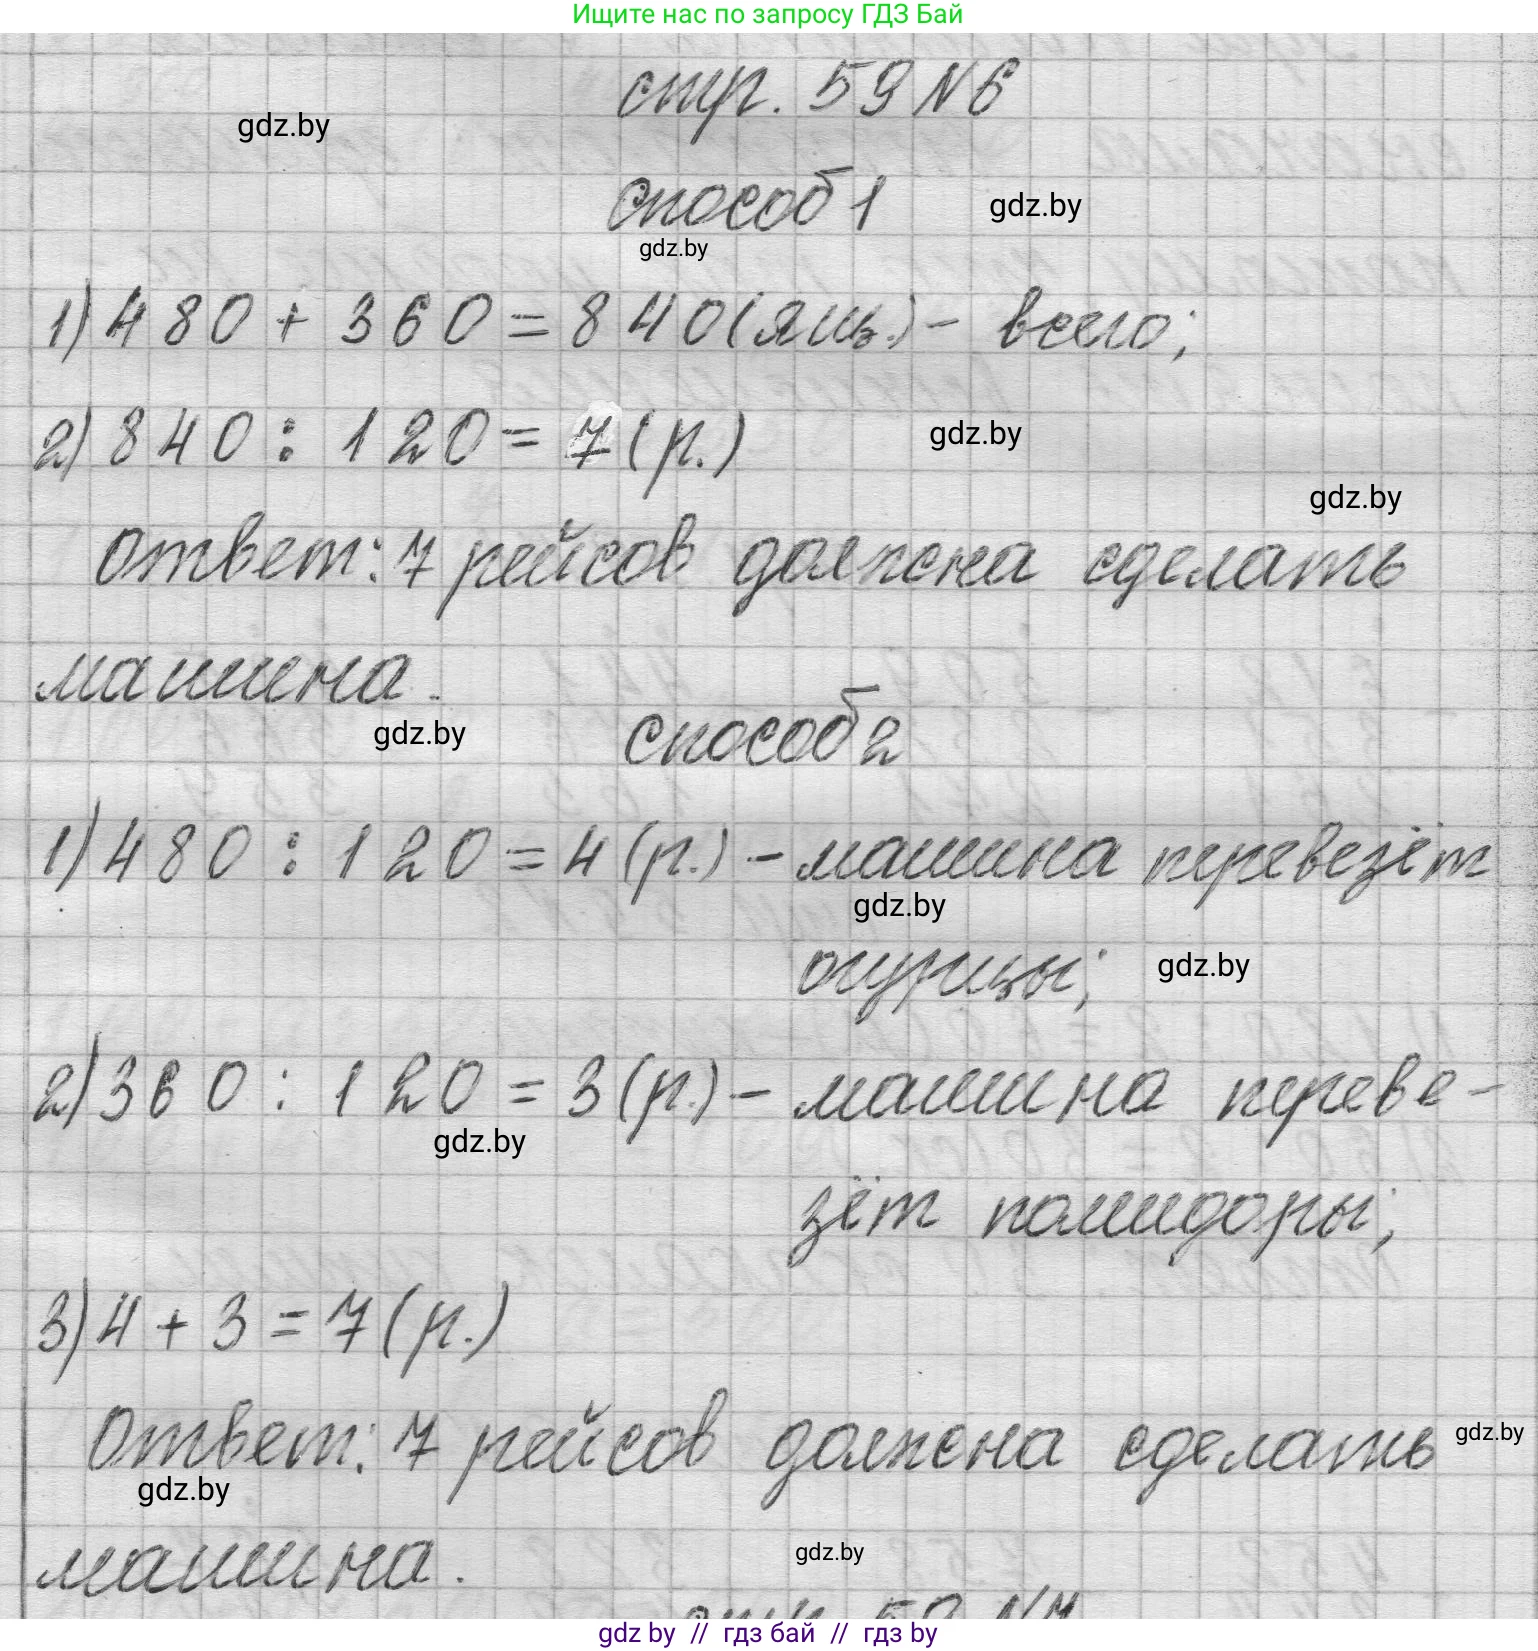 Ищите нас по запросу ГДЗ Бай
стр. 59 №6
gdz.by
способ 1
gdz.by
gdz.by
1) 480 + 360 = 840 (ящ.) - всего;
2) 840 : 120 = 7 (р.)
gdz.by
gdz.by
Ответ: 7 рейсов должна сделать
машина.
gdz.by
способ 2
1) 480 : 120 = 4 (р.) - машина перевезёт
gdz.by
огурцы;
gdz.by
2) 360 : 120 = 3 (р.) - машина переве-
gdz.by
зёт помидоры;
3) 4 + 3 = 7 (р.)
Ответ: 7 рейсов должна сделать
gdz.by
gdz.by
машина.
gdz.by
стр. 59 №7
gdz by // гдз бай // гдз by